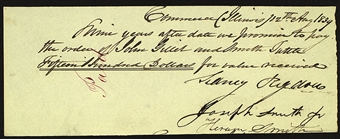 Commerce (Illinois) 12th Aug 1839
Nine years after date we promise to pay
the order of John Gillet and Smith Tuttle
Fifteen Hundred Dollars for value received
Joseph Smith Jr
Hyrum Smith